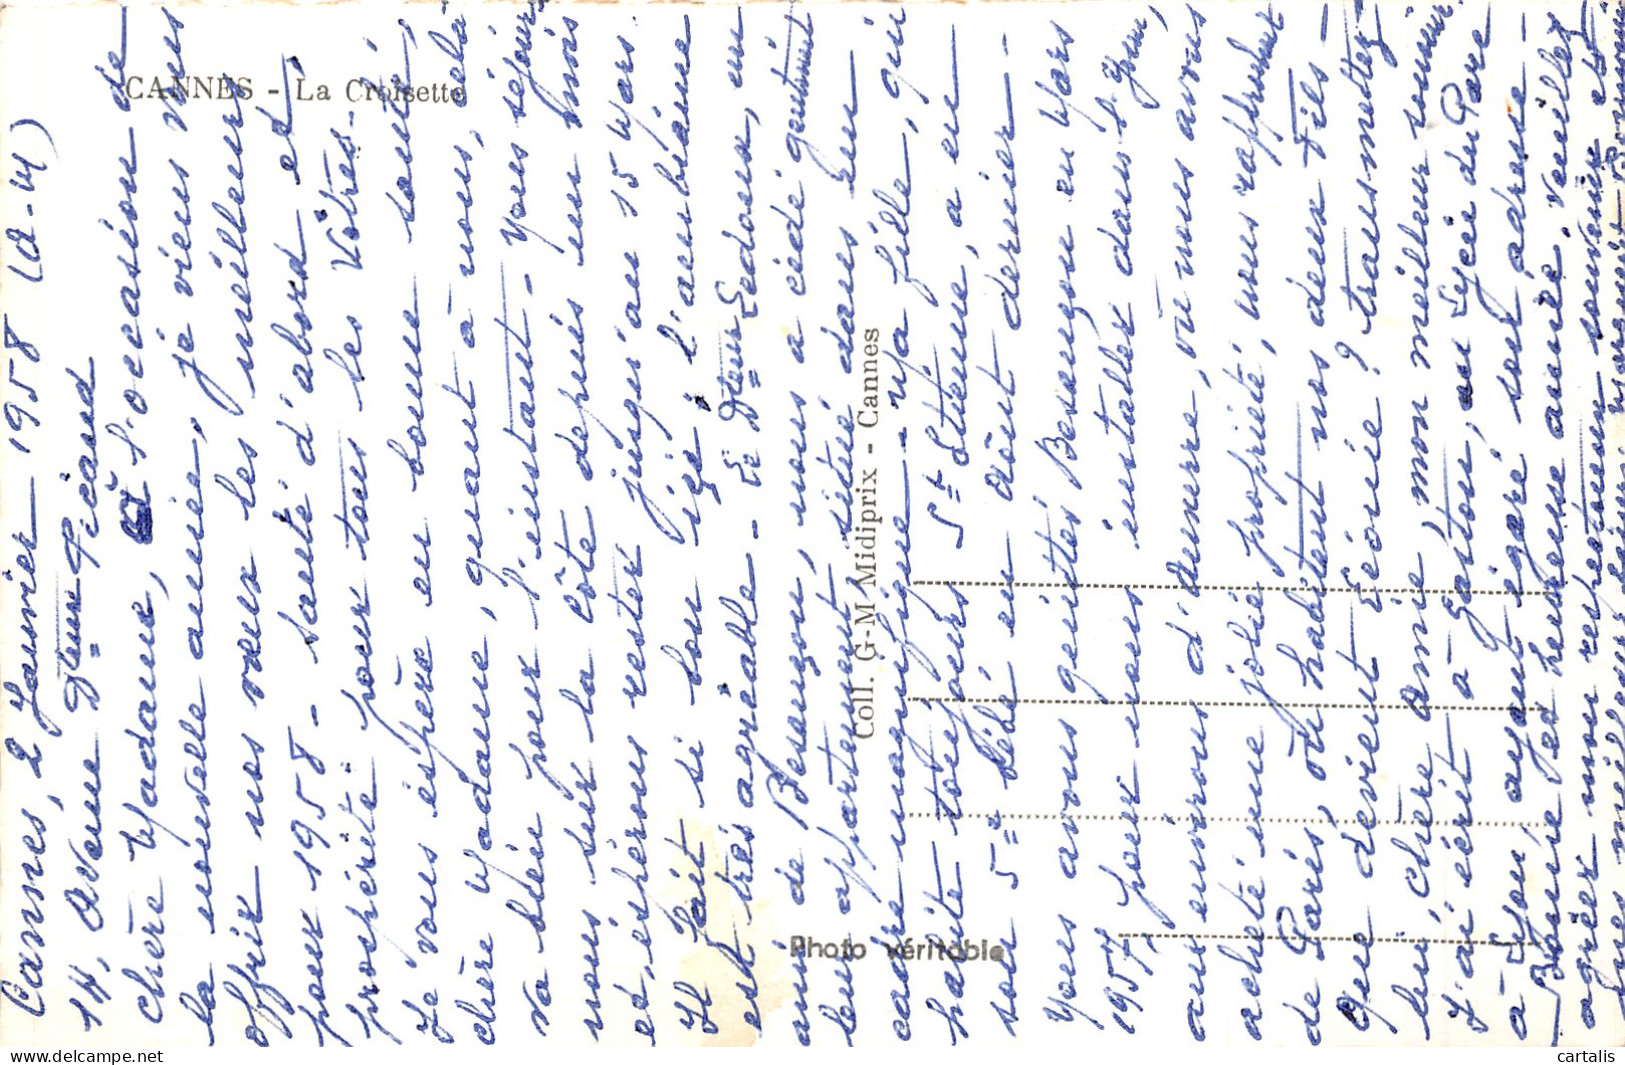 CANNES - La Croisette
Coll. G-M Midiprix - Cannes
Photo véritable
Cannes, 2 Janvier 1958 (A-M)
14, Avenue Dr Picaud
Chère Madame, à l'occasion de
la nouvelle année, je viens vous
offrir nos vœux les meilleurs
pour 1958 - santé d'abord et
prospérité pour tous les Vôtres.
Je vous espère en bonne santé,
chère Madame, quant à nous, cela
va bien pour l'instant - Nous séjour-
nons sur la Côte depuis un mois
et, espérons rester jusqu'au 15 Mars.
Il fait si bon ici, l'ambiance
est très agréable - Le Dr Ledoux, un
ami de Besançon, nous a cédé gentiment
leur appartement, situé dans un
cadre magnifique - Ma fille, qui
habite toujours St Etienne, a eu
son 5e bébé en août dernier -
Nous avons quitté Besançon en Mars
1957, pour nous installer dans l'Yonne,
aux environs d'Auxerre, où nous avons
acheté une jolie propriété, nous rapprochant
de Paris, où habitent nos deux fils -
Que devient Léonie ? transmettez
lui, chère Amie, mon meilleur souvenir.
J'ai écrit à Gaston, au Lycée du Parc
à Lyon, ayant égaré son adresse -
Bonne et heureuse année, veuillez
agréer mon respectueux souvenir et
mes meilleurs
cartalis